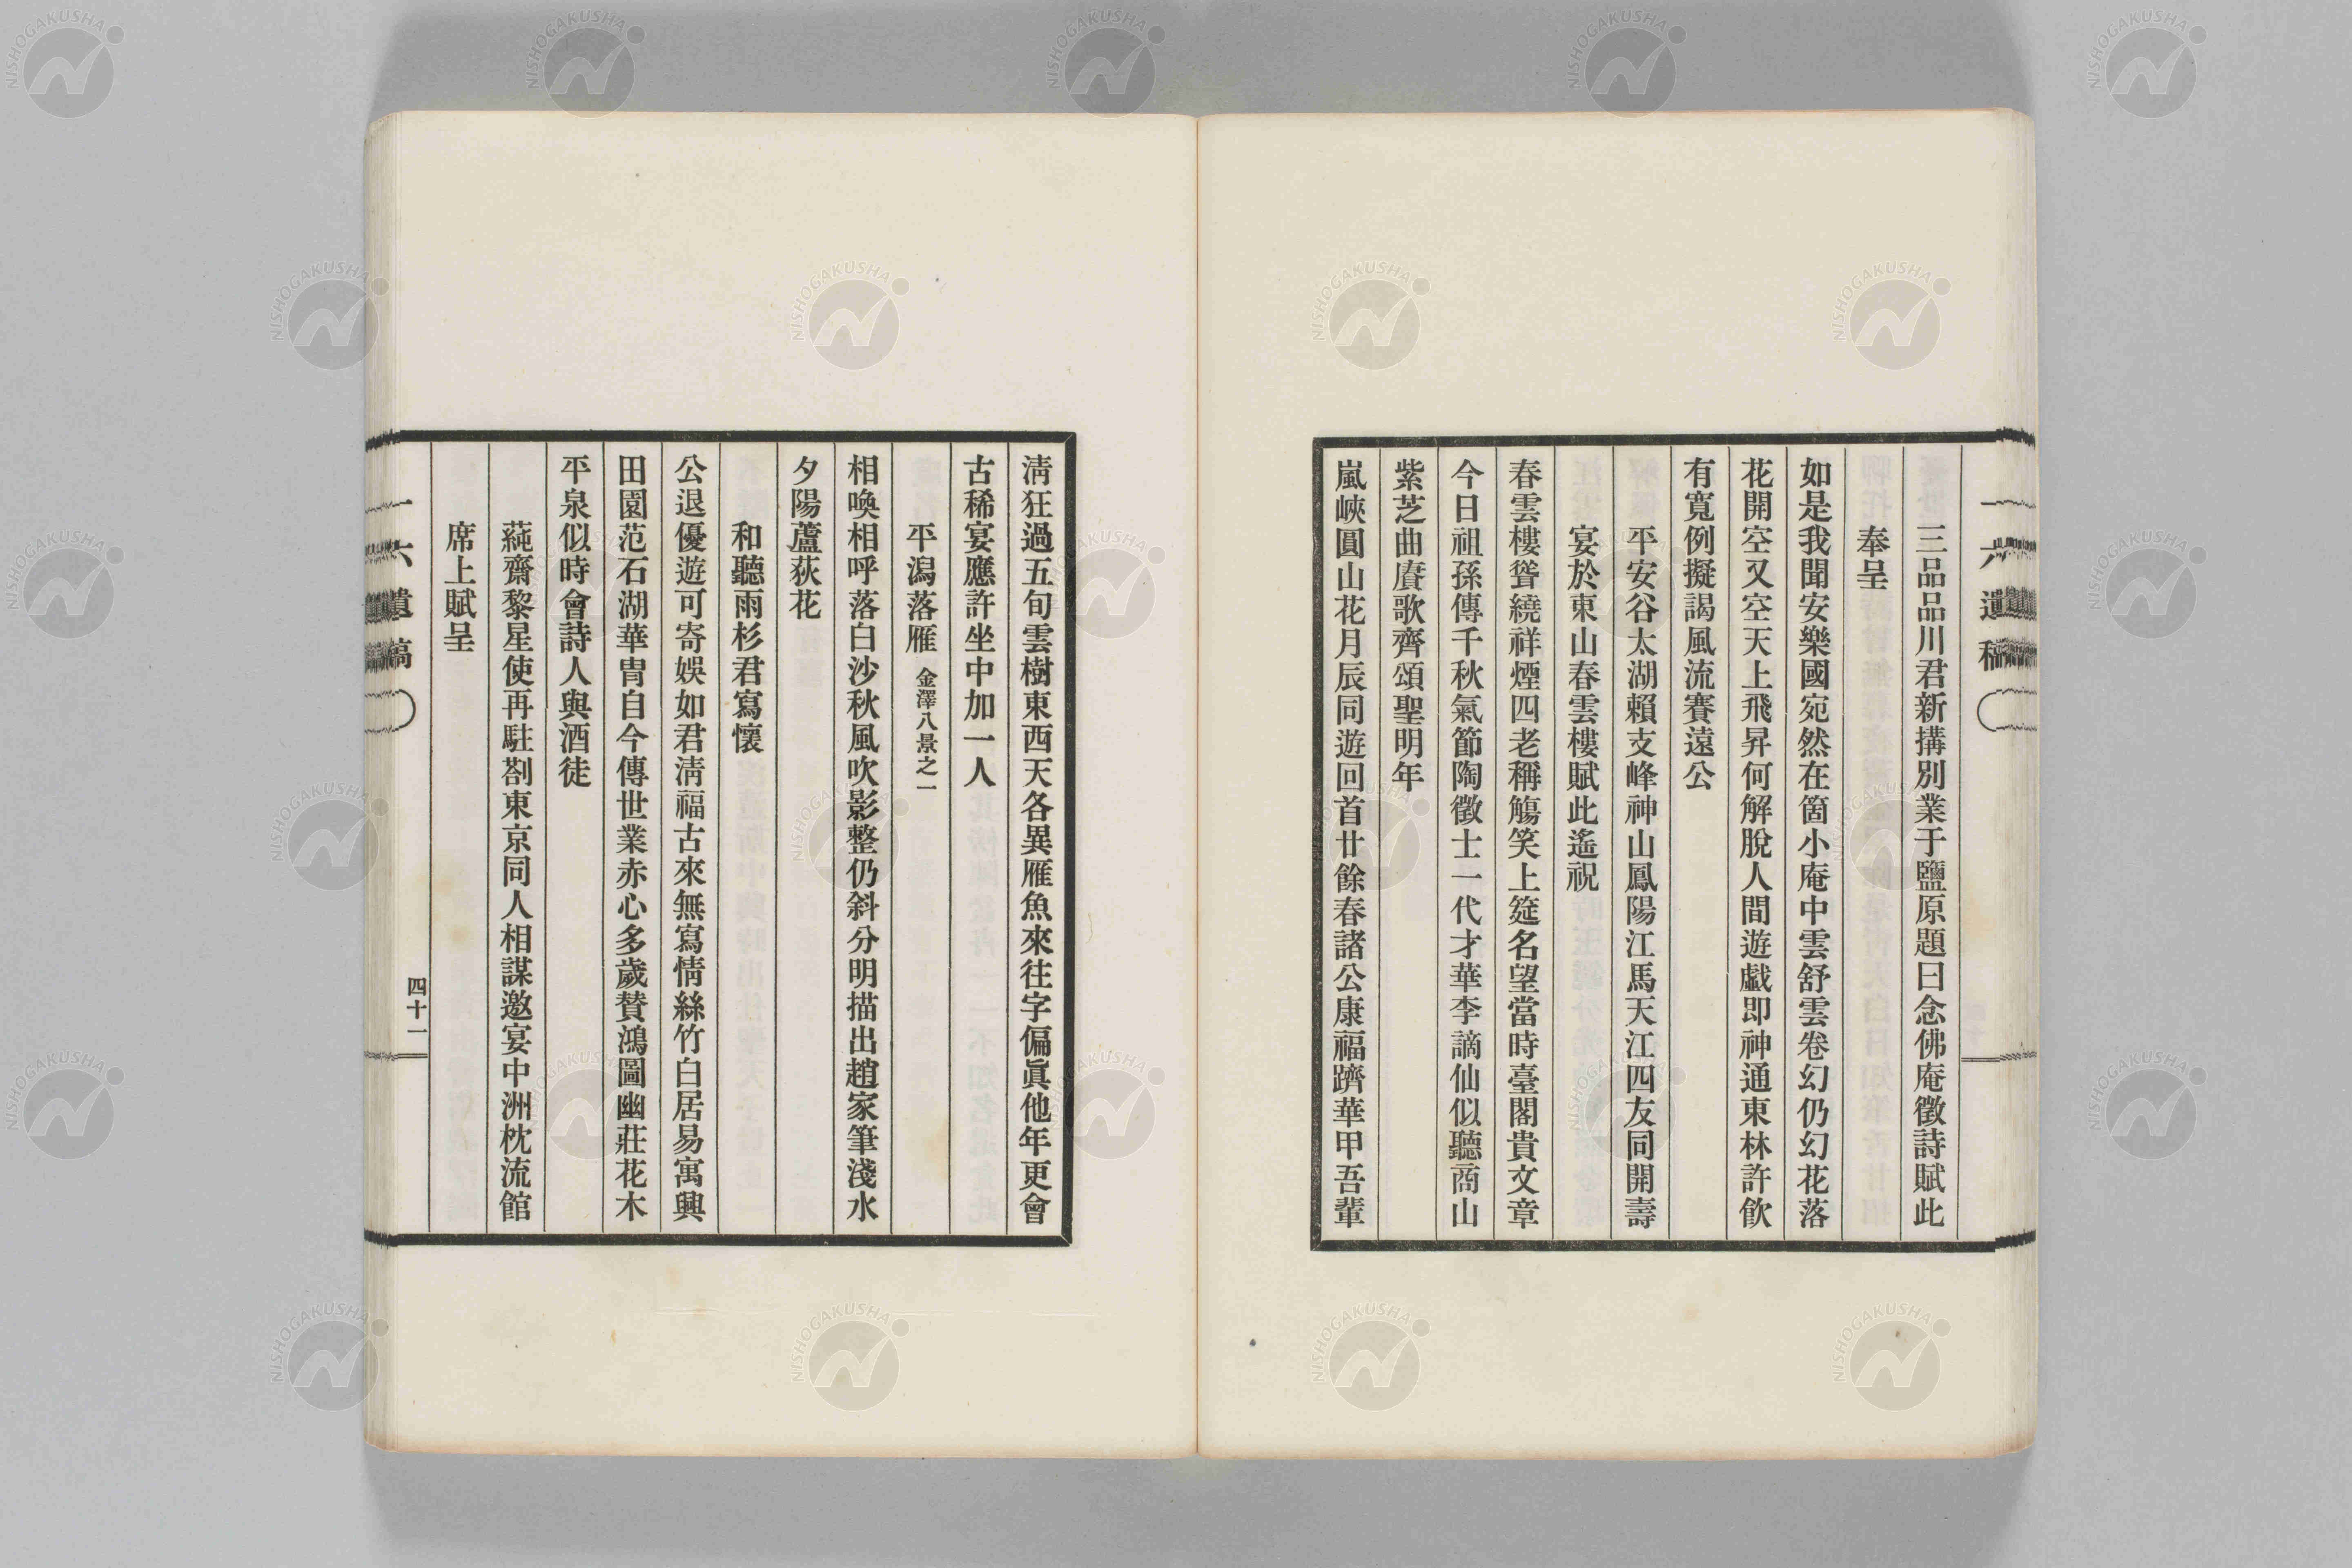 一六遺稿
三品品川君新搆別業于鹽原題曰念佛庵徵詩賦此
奉呈
如是我聞安樂國宛然在箇小庵中雲舒雲卷幻仍幻花落
花開空又空天上飛昇何解脫人間遊戲即神通東林許飮
有寬例擬謁風流賽遠公
平安谷太湖賴支峰神山鳳陽江馬天江四友同開壽
宴於東山春雲樓賦此遙祝
春雲樓聳繞祥煙四老稱觴笑上筵名望當時臺閣貴文章
今日祖孫傳千秋氣節陶徵士一代才華李謫仙似聽商山
紫芝曲賡歌齊頌聖明年
嵐峽圓山花月辰同遊回首廿餘春諸公康福躋華甲吾輩
淸狂過五旬雲樹東西天各異雁魚來往字偏眞他年更會
古稀宴應許坐中加一人
平潟落雁 金澤八景之一
相喚相呼落白沙秋風吹影整仍斜分明描出趙家筆淺水
夕陽蘆荻花
和聽雨杉君寫懷
公退優遊可寄娛如君淸福古來無寫情絲竹白居易寓興
田園范石湖華胄自今傳世業赤心多歲贊鴻圖幽莊花木
平泉似時會詩人與酒徒
蒓齋黎星使再駐劄東京同人相謀邀宴中洲枕流館
席上賦呈
一六遺稿
四十一
NISHOGAKUSHA